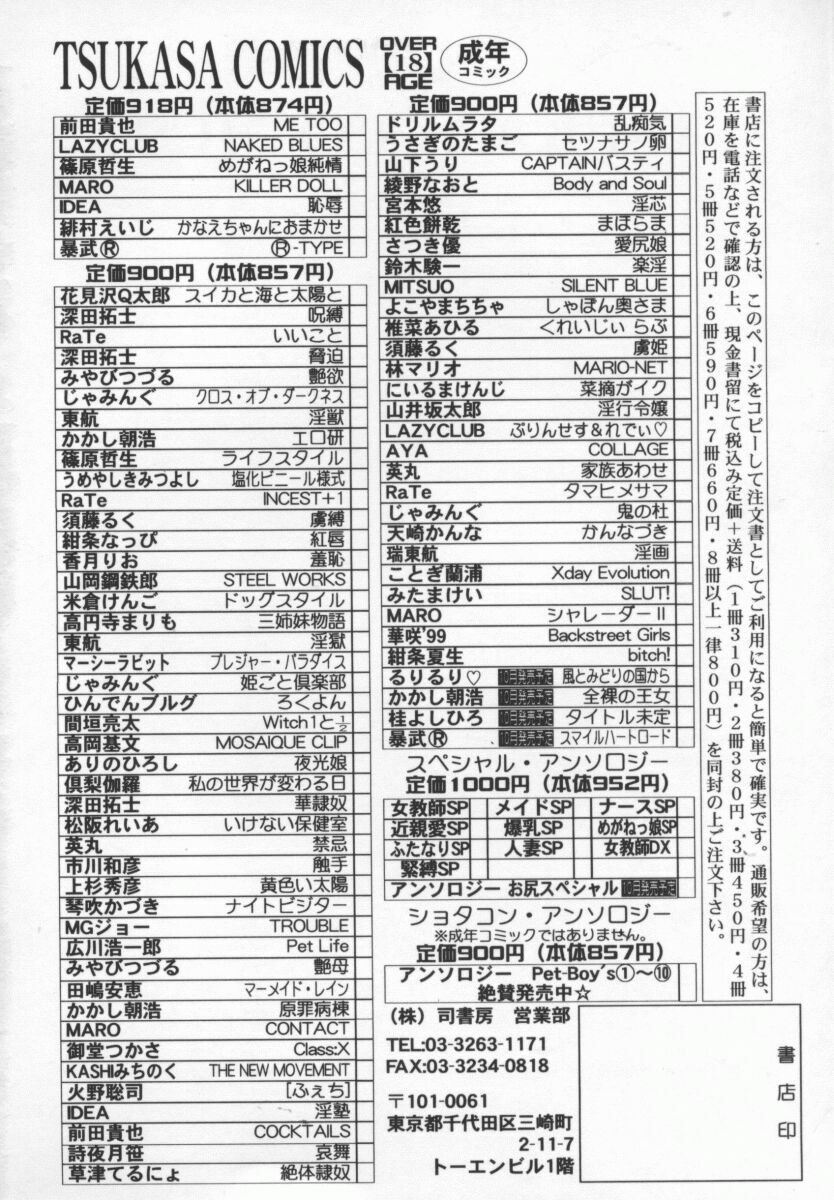 TSUKASA COMICS
OVER
【18】
AGE
成年
コミック
定価918円（本体874円）
前田貴也 ME TOO
LAZYCLUB NAKED BLUES
篠原哲生 めがねっ娘純情
MARO KILLER DOLL
IDEA 恥辱
緋村えいじ かなえちゃんにおまかせ
暴武Ⓡ Ⓡ-TYPE
定価900円（本体857円）
花見沢Q太郎 スイカと海と太陽と
深田拓士 呪縛
RaTe いいこと
深田拓士 脅迫
みやびつづる 艶欲
じゃみんぐ クロス・オブ・ダークネス
東航 淫獣
かかし朝浩 エロ研
篠原哲生 ライフスタイル
うめやしきみつよし 塩化ビニール様式
RaTe INCEST+1
須藤るく 虜縛
紺条なっぴ 紅唇
香月りお 羞恥
山岡鋼鉄郎 STEEL WORKS
米倉けんご ドッグスタイル
高円寺まりも 三姉妹物語
東航 淫獄
マーシーラビット プレジャー・パラダイス
じゃみんぐ 姫ごと倶楽部
ひんでんブルグ ろくよん
間垣亮太 Witch1と½
高岡基文 MOSAIQUE CLIP
ありのひろし 夜光娘
倶梨伽羅 私の世界が変わる日
深田拓士 華隷奴
松阪れいあ いけない保健室
英丸 禁忌
市川和彦 触手
上杉秀彦 黄色い太陽
琴吹かづき ナイトビジター
MGジョー TROUBLE
広川浩一郎 Pet Life
みやびつづる 艶母
田嶋安恵 マーメイド・レイン
かかし朝浩 原罪病棟
MARO CONTACT
御堂つかさ Class:X
KASHIみちのく THE NEW MOVEMENT
火野聡司 [ふぇち]
IDEA 淫塾
前田貴也 COCKTAILS
詩夜月笹 哀舞
草津てるにょ 絶体隷奴
定価900円（本体857円）
ドリルムラタ 乱痴気
うさぎのたまご セツナサノ卵
山下うり CAPTAINバスティ
綾野なおと Body and Soul
宮本悠 淫芯
紅色餅乾 まほらま
さつき優 愛尻娘
鈴木駿一 楽淫
MITSUO SILENT BLUE
よこやまちちゃ しゃぼん奥さま
椎菜あひる くれいじぃ らぶ
須藤るく 虜姫
林マリオ MARIO-NET
にいるまけんじ 菜摘がイク
山井坂太郎 淫行令嬢
LAZYCLUB ぷりんせす&れでぃ♡
AYA COLLAGE
英丸 家族あわせ
RaTe タマヒメサマ
じゃみんぐ 鬼の杜
天崎かんな かんなづき
瑞東航 淫画
ことぎ蘭浦 Xday Evolution
みたまけい SLUT!
MARO シャレーダーⅡ
華咲'99 Backstreet Girls
紺条夏生 bitch!
るりるり♡ 10月発売予定 風とみどりの国から
かかし朝浩 10月発売予定 全裸の王女
桂よしひろ 10月発売予定 タイトル未定
暴武Ⓡ 10月発売予定 スマイルハートロード
スペシャル・アンソロジー
定価1000円（本体952円）
女教師SP メイドSP ナースSP
近親愛SP 爆乳SP めがねっ娘SP
ふたなりSP 人妻SP 女教師DX
緊縛SP
アンソロジー お尻スペシャル 10月発売予定
ショタコン・アンソロジー
※成年コミックではありません。
定価900円（本体857円）
アンソロジー Pet-Boy's①〜⑩
絶賛発売中☆
（株）司書房 営業部
TEL:03-3263-1171
FAX:03-3234-0818
〒101-0061
東京都千代田区三崎町
2-11-7
トーエンビル1階
書店印
書店に注文される方は、このページをコピーして注文書としてご利用になると簡単で確実です。通販希望の方は、
在庫を電話などで確認の上、現金書留にて税込み定価＋送料（1冊310円・2冊380円・3冊450円・4冊
520円・5冊520円・6冊590円・7冊660円・8冊以上一律800円）を同封の上ご注文下さい。